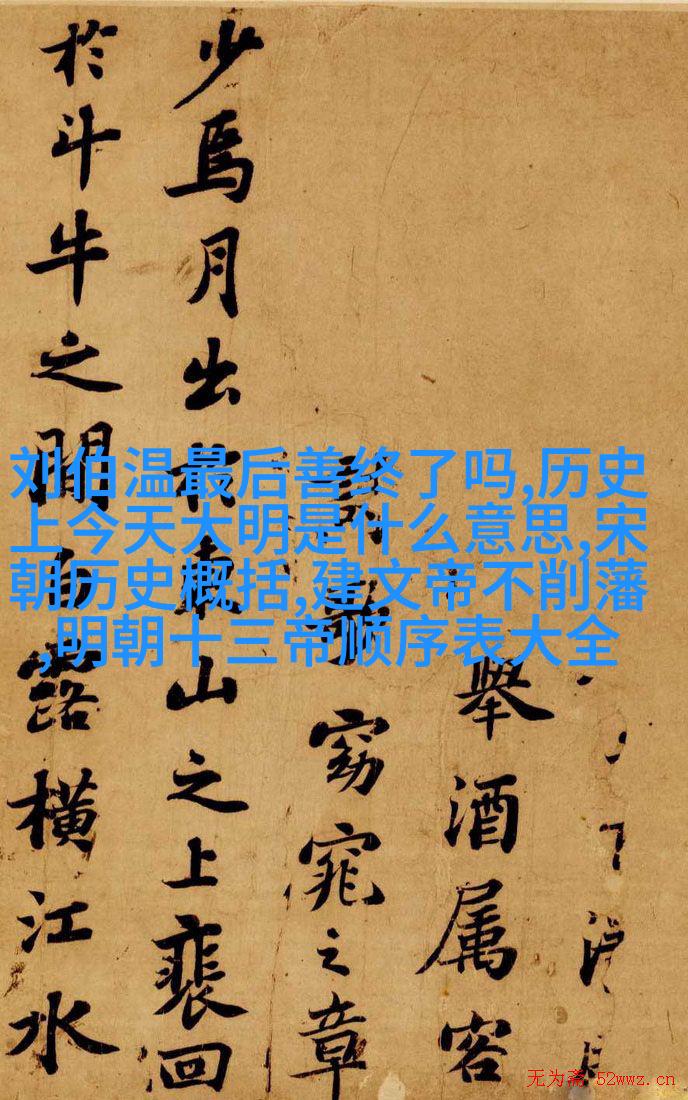 舉酒属客
窈窕之章
少焉月出於東山之上裵回
於斗牛之間白露橫江水
刘伯温最后善终了吗,历史
上今天大明是什么意思,宋
朝历史概括,建文帝不削藩
,明朝十三帝顺序表大全
无为斋 52wwz.cn